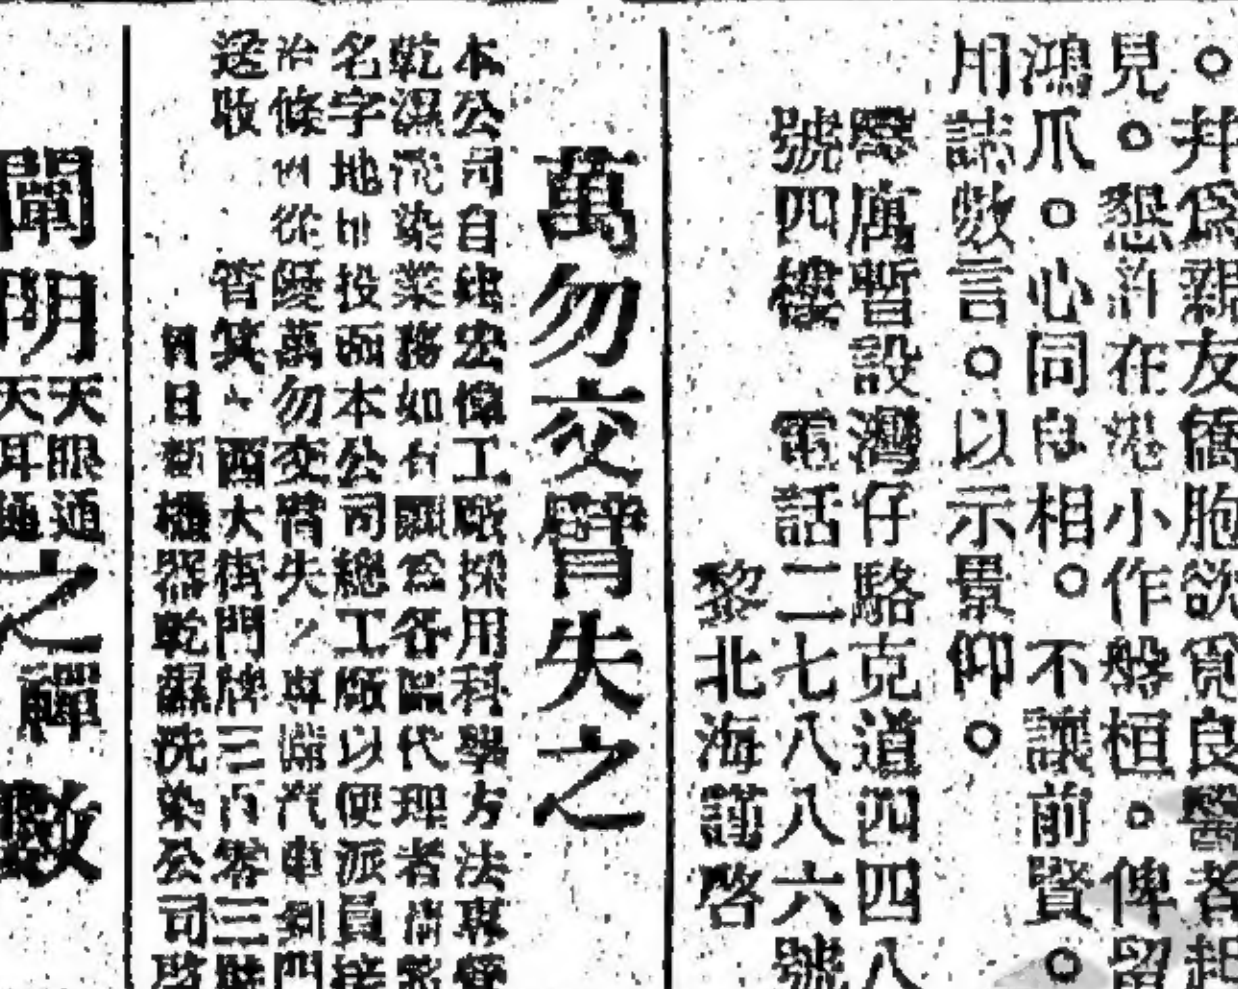 。并為親友僑胞欲覓良醫者起
見。懇許在港小作盤桓。俾留
鴻爪。心同良相。不讓前賢。
用誌數言。以示景仰。
醫寓暫設灣仔駱克道四四八
號四樓 電話二七八八六號
黎北海謹啓
萬勿交臂失之
本公司自建宏偉工厰採用科學方法專營
乾濕洗染業務如有願為各區代理者請
名字地址投函本公司總工厰以便派員接
治條件從優萬勿交臂失 專 汽車 門
送收 管 西大街門牌三百零三號
日新機器乾濕洗染公司啓
闡明天眼通天耳通之禪數